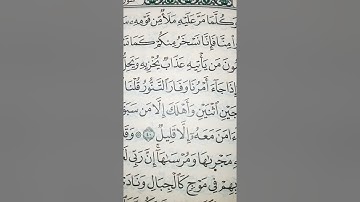 وَكُلَّمَا مَرَّ عَلَيْهِ مَلَأٌ مِّن قَوْمِهِۦ
مِنَّا فَإِنَّا نَسْخَرُ مِنكُمْ كَمَا
مَن يَأْتِيهِ عَذَابٌ يُخْزِيهِ وَيَحِلُّ
إِذَا جَآءَ أَمْرُنَا وَفَارَ ٱلتَّنُّورُ قُلْنَا
جَيْنِ ٱثْنَيْنِ وَأَهْلَكَ إِلَّا مَن سَبَ
مَعَهُۥٓ إِلَّا قَلِيلٌ ٤٠ وَقَ
مَجْر۪ىٰهَا وَمُرْسَىٰهَآ إِنَّ رَبِّى لَ
بِهِمْ فِى مَوْجٍ كَٱلْجِبَالِ وَنَادَ